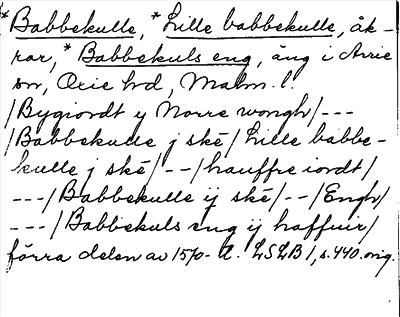 *Babbekulle, *Lille babbekulle, åk-
rar, *Babbekuls eng, äng i Arrie
sn, Oxie hd, Malm. l.
/Bygiordt y Norre wongh/---
/Babbekulle j ské/Lille babbe-
kulle j ské/--/hauffre iordt/
---/Babbekulle ij ské/--/Engh/
---/Babbekuls eng ij haffuir/
förra delen av 1570-t. LSLB 1, s. 440. orig.